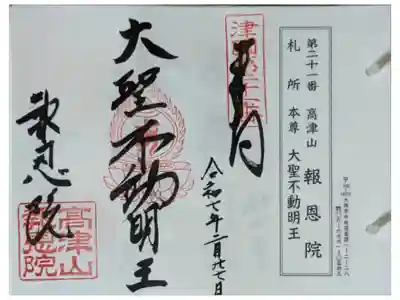 第二十一番 高津山 報恩院
札所 本尊 大聖不動明王
奉拝
令和七年二月廿七日
大聖不動明王
報恩院
高津山
報恩院